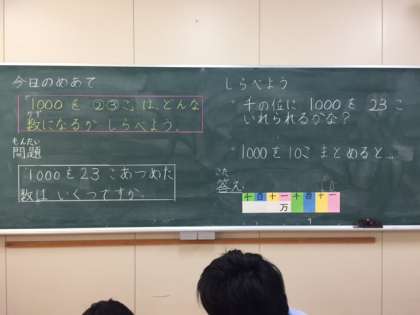 今日のめあて
「1000を ㉓こ」は、どんな
かず
数になるか しらべよう。
もんだい
問題
1000を23こあつめた
数は いくつですか。
しらべよう
・千の位に 1000を 23こ
いれられるかな？
・1000を10こ まとめると…
こた
答え
千百十一千百十一
万